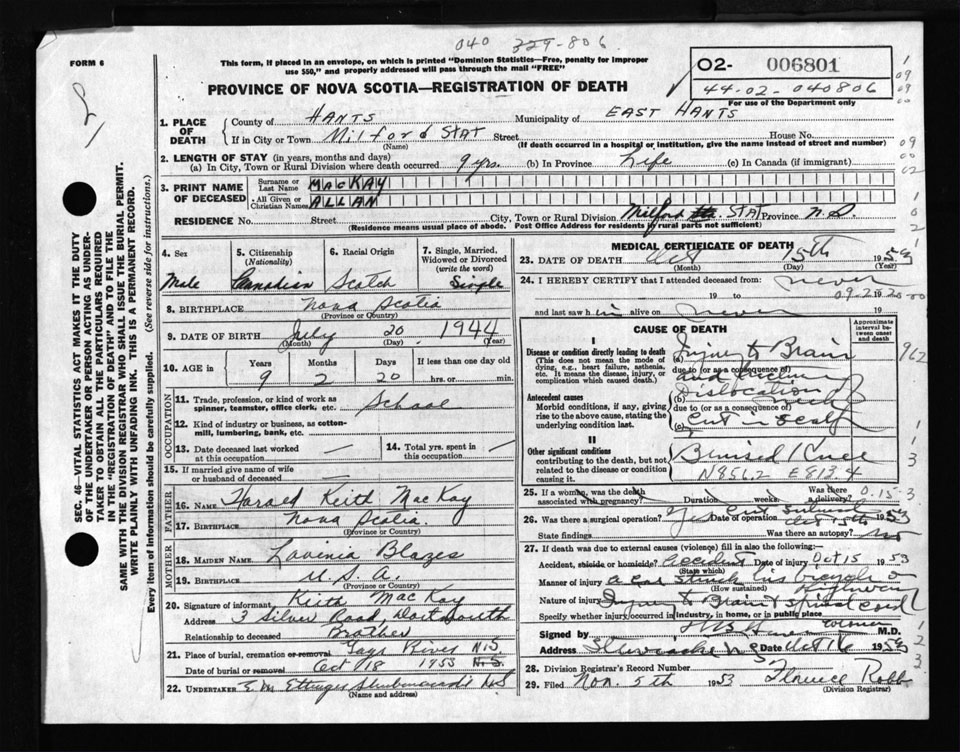 040 329-806
FORM 6
This form, if placed in an envelope, on which is printed "Dominion Statistics—Free, penalty for improper use $50," and properly addressed will pass through the mail "FREE"
PROVINCE OF NOVA SCOTIA—REGISTRATION OF DEATH
O2- 006801
44-02-040806
For use of the Department only
SEC. 46—VITAL STATISTICS ACT MAKES IT THE DUTY
OF THE UNDERTAKER OR PERSON ACTING AS UNDER-
TAKER TO OBTAIN ALL THE PARTICULARS REQUIRED
IN THE "REGISTRATION OF DEATH" AND TO FILE THE
SAME WITH THE DIVISION REGISTRAR WHO SHALL ISSUE THE BURIAL PERMIT.
WRITE PLAINLY WITH UNFADING INK. THIS IS A PERMANENT RECORD.
Every item of information should be carefully supplied. (See reverse side for instructions.)
1. PLACE OF DEATH County of HANTS Municipality of EAST HANTS
If in City or Town Milford STAT Street House No.
(Name) (If death occurred in a hospital or institution, give the name instead of street and number)
2. LENGTH OF STAY (in years, months and days)
(a) In City, Town or Rural Division where death occurred 9 yrs. (b) In Province Life (c) In Canada (if immigrant)
3. PRINT NAME OF DECEASED Surname or Last Name MACKAY
All Given or Christian Names ALLAN
RESIDENCE No. Street City, Town or Rural Division Milford STAT Province N.S.
(Residence means usual place of abode. Post Office Address for residents in rural parts not sufficient)
4. Sex Male
5. Citizenship (Nationality) Canadian
6. Racial Origin Scotch
7. Single, Married, Widowed or Divorced (write the word) Single
8. BIRTHPLACE Nova Scotia
(Province or Country)
9. DATE OF BIRTH July 20 1944
(Month) (Day) (Year)
10. AGE in Years Months Days If less than one day old
9 2 20 hrs. or min.
OCCUPATION
11. Trade, profession, or kind of work as spinner, teamster, office clerk, etc. School
12. Kind of industry or business, as cotton-mill, lumbering, bank, etc.
13. Date deceased last worked at this occupation
14. Total yrs. spent in this occupation
15. If married give name of wife or husband of deceased
FATHER
16. Name Harold Keith MacKay
17. BIRTHPLACE Nova Scotia.
(Province or Country)
MOTHER
18. MAIDEN NAME Lavinia Blazes
19. BIRTHPLACE U.S.A.
(Province or Country)
20. Signature of informant Keith MacKay
Address 3 Silver Road, Dartmouth
Relationship to deceased Brother
21. Place of burial, cremation or removal Gays River N.S.
Date of burial or removal Oct 18 1953
22. UNDERTAKER E.M. Ettinger Shubenacadie N.S
(Name and address)
MEDICAL CERTIFICATE OF DEATH
23. DATE OF DEATH Oct 15th 1953
(Month) (Day) (Year)
24. I HEREBY CERTIFY that I attended deceased from: never
19 to 19
and last saw him alive on never 19
CAUSE OF DEATH
Approximate interval between onset and death
I
Disease or condition directly leading to death
(This does not mean the mode of dying, e.g., heart failure, asthenia, etc. It means the disease, injury, or complication which caused death.)
(a) Injury to Brain
due to (or as a consequence of)
Antecedent causes
Morbid conditions, if any, giving rise to the above cause, stating the underlying condition last.
(b) Dislocation neck
due to (or as a consequence of)
(c) Cut in Scalp
II
Other significant conditions
contributing to the death, but not related to the disease or condition causing it.
Bruised Knee
N856.2 E813.4
25. If a woman, was the death associated with pregnancy? Duration weeks. Was there a delivery?
26. Was there a surgical operation? Yes Date of operation Oct 15th 1953
State findings Was there an autopsy? no
27. If death was due to external causes (violence) fill in also the following:—
Accident, suicide or homicide? accident Date of injury Oct 15 1953
(State which)
Manner of injury a car struck his bicycle
(How sustained)
Nature of injury Injury to Brain & spinal cord
Specify whether injury occurred in industry, in home, or in public place
Signed by Coroner M.D.
Address Date Oct 16 1953
28. Division Registrar's Record Number
29. Filed Nov. 5th 1953 Florence Robb
(Division Registrar)